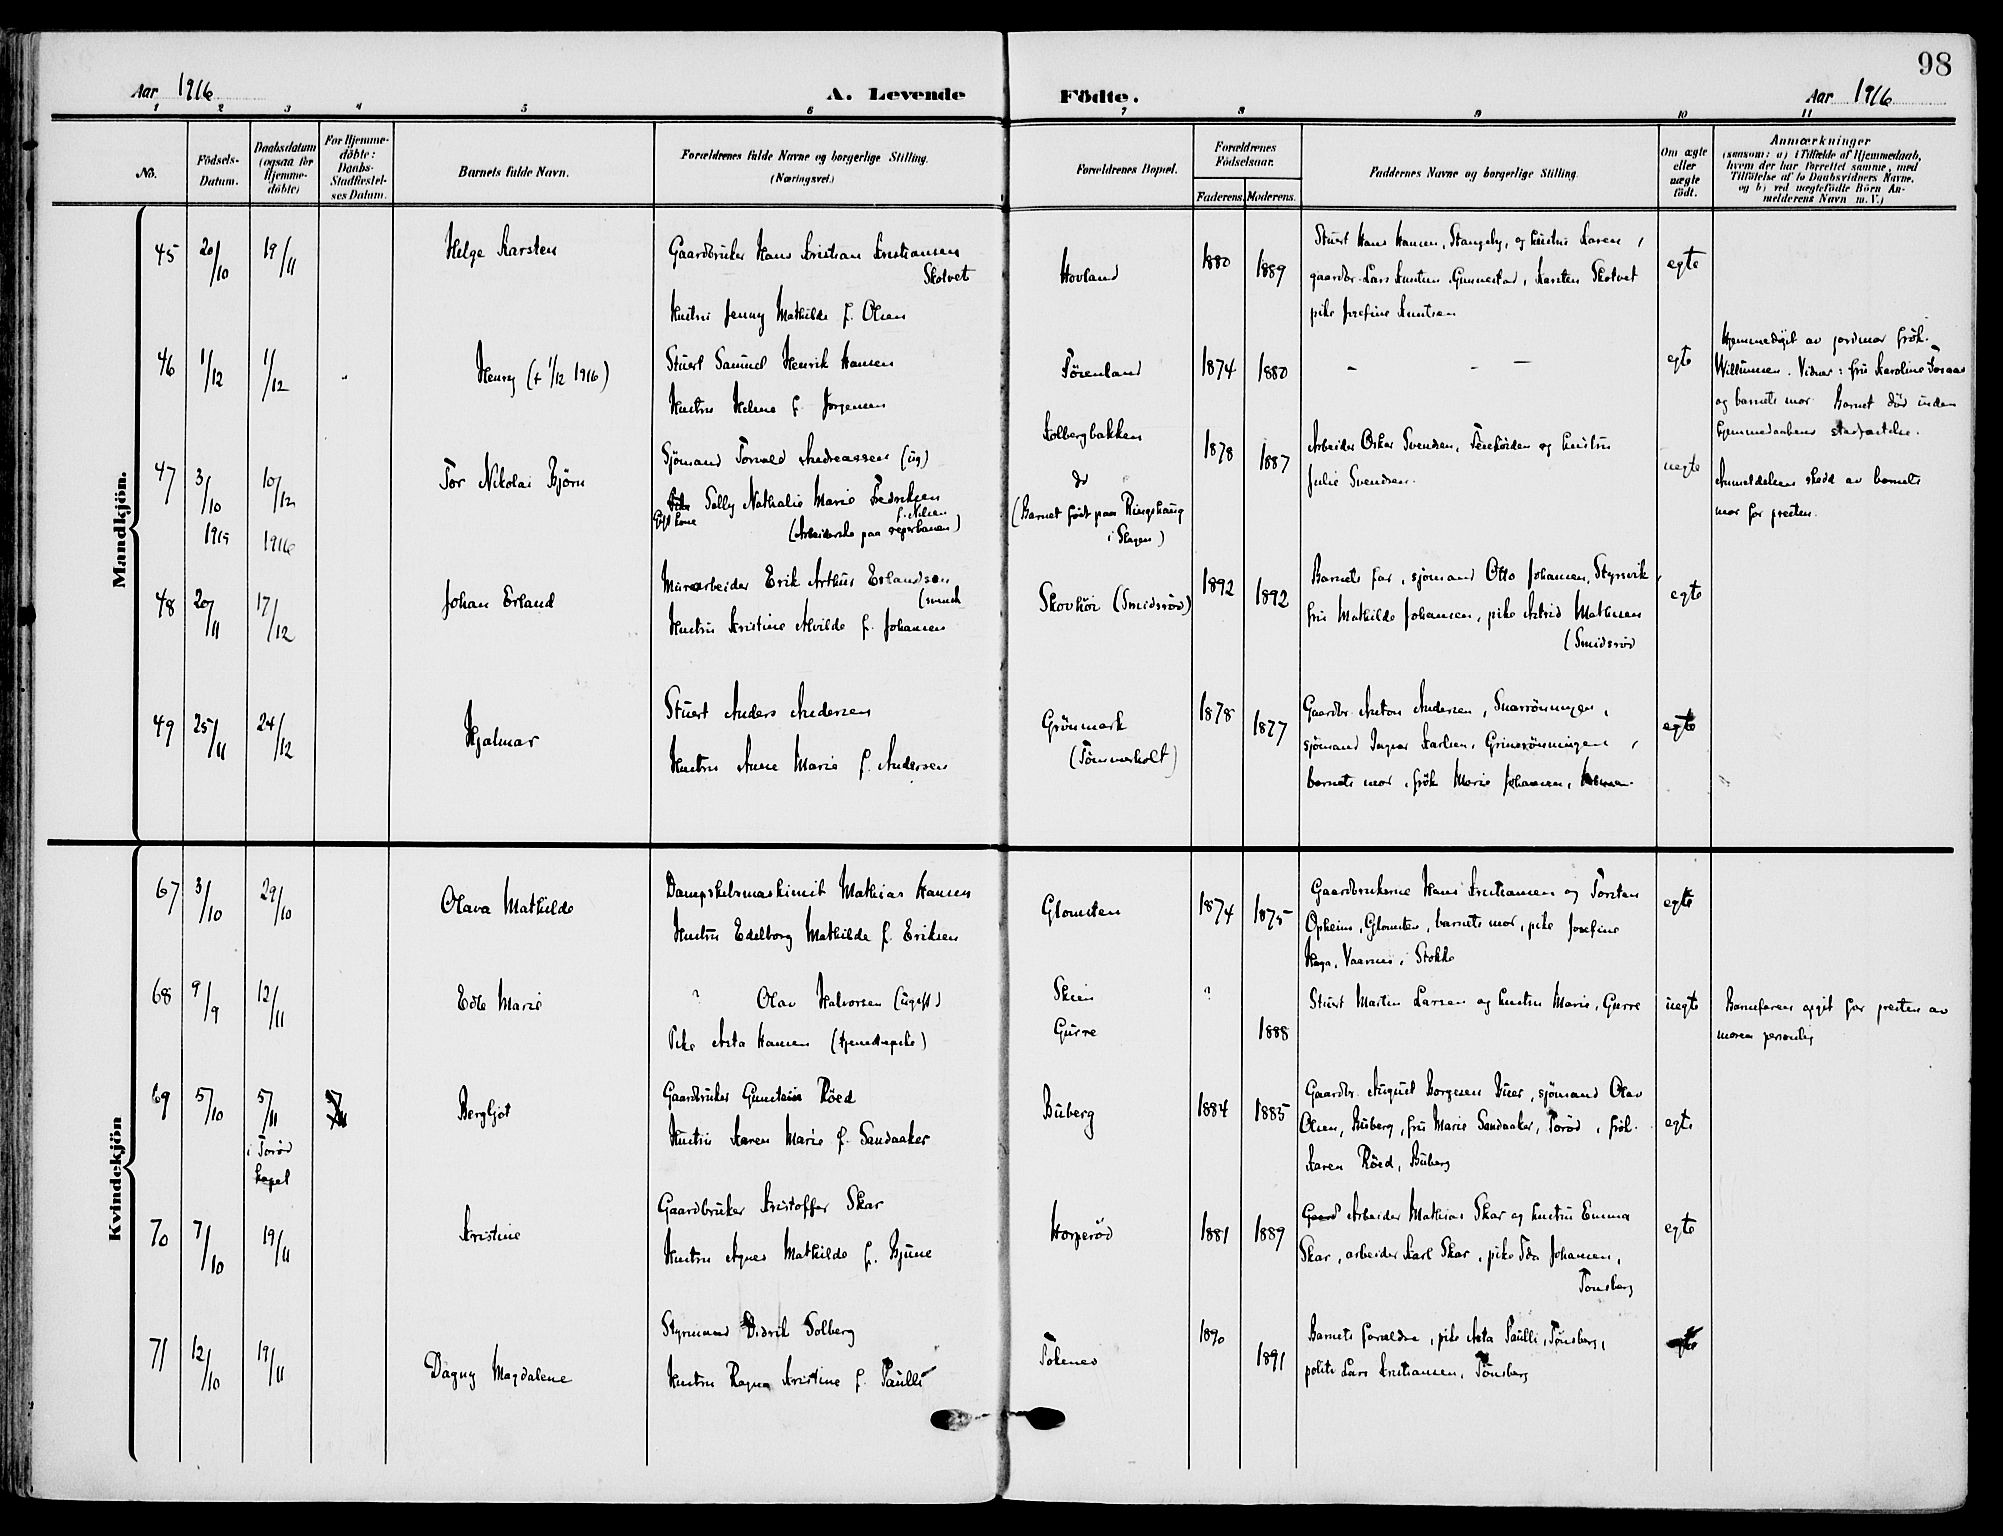 98
Aar 1916
A. Levende Födte.
Aar 1916
1 2 3 4 5 6 7 8 9 10 11
No.
Födsels-
Datum.
Daabsdatum
(ogsaa for
Hjemme-
döbte)
For Hjemme-
döbte:
Daabs-
Stadfæstel-
ses Datum.
Barnets fulde Navn.
Forældrenes fulde Navne og borgerlige Stilling.
(Næringsvei.)
Forældrenes Bopæl.
Forældrenes
Födselsaar.
Faderens. Moderens.
Faddernes Navne og borgerlige Stilling.
Om ægte
eller
uægte
födt.
Anmærkninger
(saasom: a) i Tilfælde af Hjemmedaab,
hvem der har forrettet samme, med
Tilföielse af to Daabsvidners Navne,
og b) ved uægtefödte Börn An-
melderens Navn m. V.)
Mandkjön.
45 20/10 19/11 Helge Karsten
Gaardbruker Hans Kristian Kristiansen
Skolvet
Hustru Jenny Mathilde f. Olsen
Hovland
1880 1889
Stuert Hans Hansen, Stangeby, og hustru Karen,
gaardbr. Lars Knutsen Gunnestad, Karsten Skolvet
pike Josefine Knutsen
egte
46 1/12 1/12 " Henry (+ 1/12 1916)
Stuert Samuel Henrik Hansen
Hustru Helene f. Jorgensen
Förenland
1874 1880
- - -
egte
Hjemmedöpt av jordmor frök.
Willumsen. Vidner: fru Karoline
og barnets mor Barnet död inden
hjemmedaabens stadfæstelse.
47 3/10 1915 10/12 1916 Tor Nikolai Björn
Sjömand Torvald Andreassen (ug)
Gift kone Selly Nathalie Marie Fredriksen
f. Nilsen
(Arbeiderske paa reperbanen)
Kolbergbakken
do
(Barnet födt paa Ringshaug
i Slagen)
1878 1887
Arbeider Oskar Svendsen, og hustru
Julie Svendsen.
uegte
Anmeldelsen skedd av barnets
mor for presten.
48 20/11 17/12 Johan Erland
Murarbeider Erik Arthur Erlandsen
(svensk
Hustru Kristine Alvilde f. Johansen
Skovhöi (Smidsröd)
1892 1892
Barnets far, sjömand Otto Johansen, Styrsvik,
fru Mathilde Johansen, pike Astrid Mathisen
(Smidsröd
egte
49 25/11 24/12 Hjalmar
Stuert Anders Andersen
Hustru Anne Marie f. Andersen
Grönmark
(Tömmerholt)
1878 1877
Gaardbr. Anton Andersen, Snarrönningen,
sjömand Ingvar Karlsen, Grinerönningen,
barnets mor, frök Marie Johansen,
egte
Kvindekjön
67 3/10 29/10 Olava Mathilde
Dampskibsmaskinist Mathias Hansen
Hustru Edelborg Mathilde f. Eriksen
Glomsten
1874 1875
Gaardbrukerne Hans Kristiansen og Torsten
Opheim, Glomsten, barnets mor, pike Josefine
Haga, Vaarnes, Stokke
egte
68 9/9 12/11 Edle Marie
? Olav Halvorsen (ugift)
Pike Asta Hansen (tjenestepike)
Skien
Gurre
? 1888
Stuert Martin Larsen og hustru Marie, Gurre
uegte
Barnefaren opgit for presten av
moren personlig
69 5/10 5/11 Bergljot
i Torød
kapel
Gaardbruker Gunstein Röed
Hustru Karen Marie f. Sandaaker
Buberg
1884 1885
Gaardbr. August Borgesen Buer, sjömand Olav
Olsen, Buberg, fru Marie Sandaaker, Torød, frök.
Karen Röed, Buberg
egte
70 7/10 19/11 Kristine
Gaardbruker Kristoffer Skar
Hustru Agnes Mathilde f. Bjune
Horperöd
1881 1889
Gaard Arbeider Mathias Skar og hustru Emma
Skar, arbeider Karl Skar, pike Ida Johansen,
Tønsberg
egte
71 12/10 19/11 Dagny Magdalene
Styrmand Didrik Solberg
Hustru Ragna Kristine f. Paulli
Tokenes
1890 1891
Barnets forældre, pike Asta Paulli, Tønsberg,
politi Lars Kristiansen, Tønsberg
egte